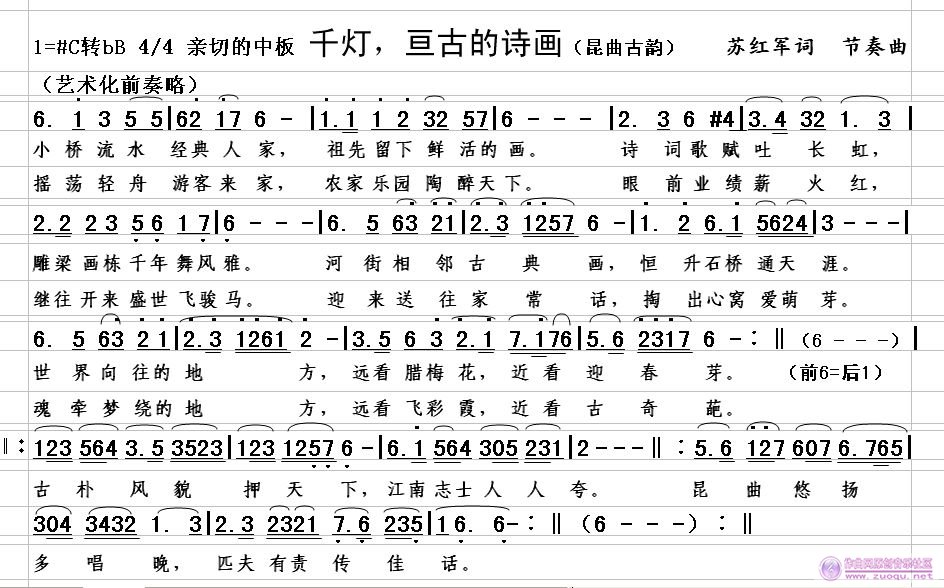 1=#C转bB 4/4 亲切的中板 千灯，亘古的诗画（昆曲古韵） 苏红军词 节奏曲
（艺术化前奏略）
6. 1 3 5 5|62 17 6 -|1.1 1 2 32 57|6 - - -|2. 3 6 #4|3.4 32 1. 3|
小桥流水 经典人家， 祖先留下鲜活的画。 诗词歌赋吐长虹，
摇荡轻舟 游客来家， 农家乐园陶醉天下。 眼前业绩薪火红，
2.2 2 3 5 6 1 7|6 - - -|6. 5 63 21|2.3 1257 6 -|1. 2 6.1 5624|3 - - -|
雕梁画栋千年舞风雅。 河街相邻古典画，恒升石桥通天涯。
继往开来盛世飞骏马。 迎来送往家常话，掏出心窝爱萌芽。
6. 5 63 2 1|2.3 1261 2 -|3.5 6 3 2.1 7.176|5.6 2317 6 -:‖（6 - - -）|
世界向往的地方，远看腊梅花，近看迎春芽。 （前6=后1）
魂牵梦绕的地方，远看飞彩霞，近看古奇葩。
‖:123 564 3.5 3523|123 1257 6 -|6.1 564 305 231|2 - - -‖:5.6 127 607 6.765|
古朴风貌押天下，江南志士人人夸。 昆曲悠扬
304 3432 1. 3|2.3 2321 7.6 235|16. 6-:‖（6 - - -）:‖
多唱晚，匹夫有责传佳话。
作曲网原创音乐社区
www.zuoqu.net